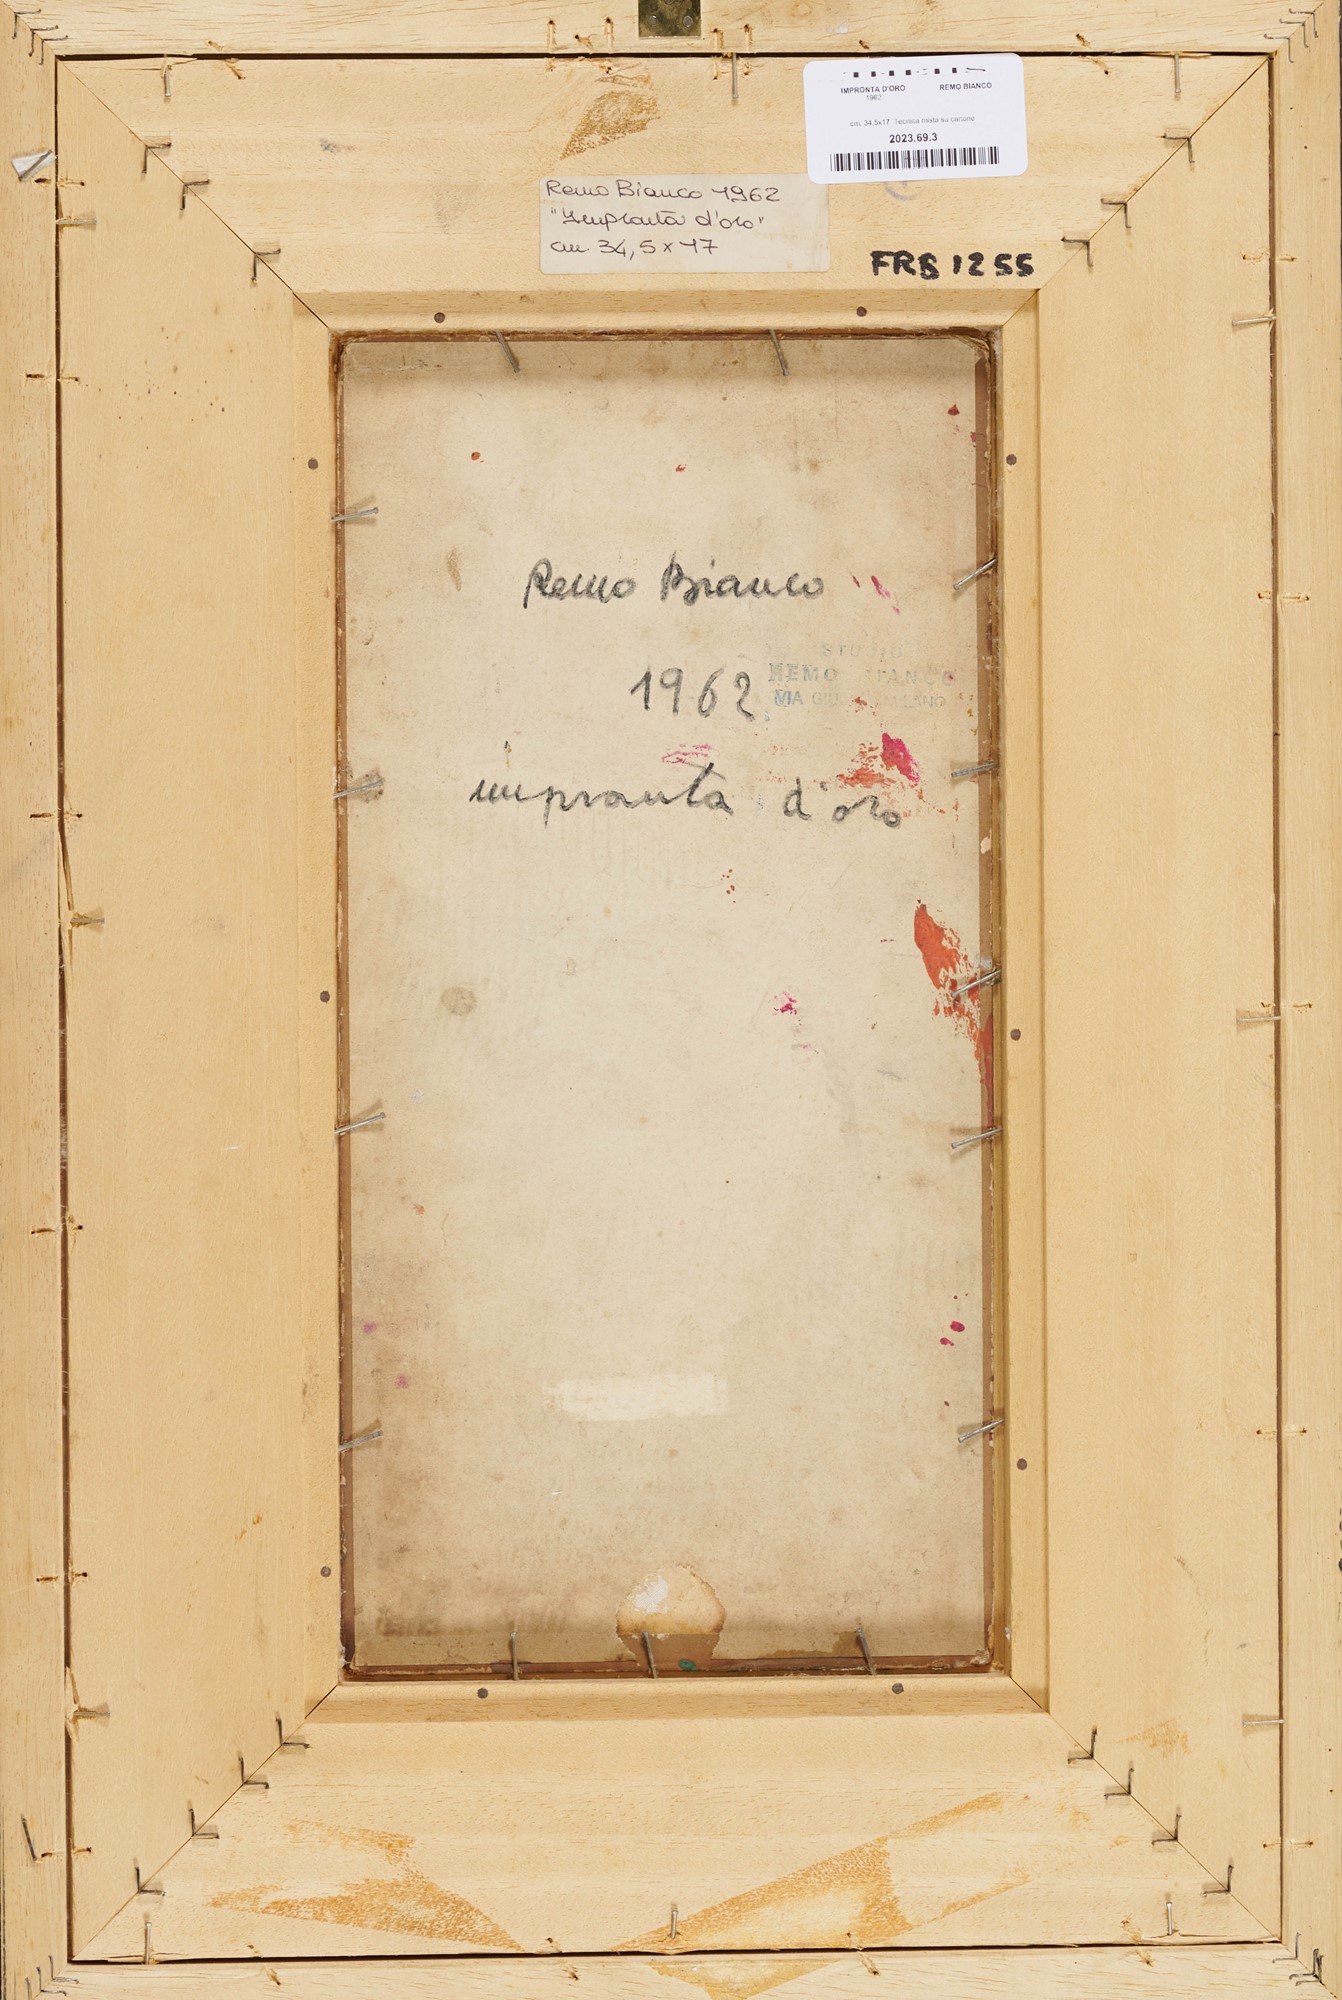 IMPRONTA D'ORO REMO BIANCO
1962
cm. 34,5x17 Tecnica mista su cartone
2023.69.3
Remo Bianco 1962
"Impronta d'oro"
cm. 34,5 x 17
FRB 1255
Remo Bianco
1962
STUDIO
REMO BIANCO
VIA MILANO
impronta d'oro